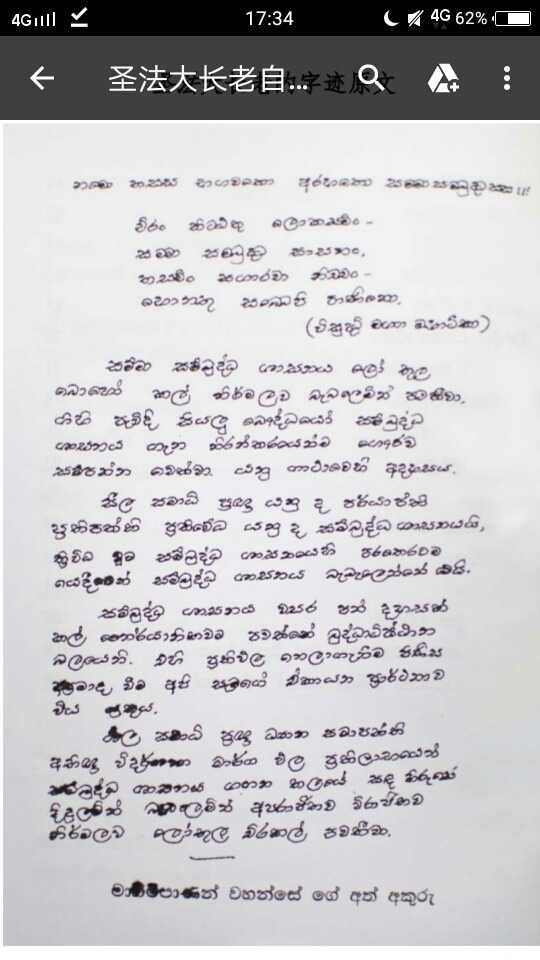 4G 17:34 4G 62%
圣法大长老自...
නමො තස්ස භගවතො අරහතො සම්මාසම්බුද්ධස්ස !!!
චිරං තිට්ඨතු ලොකස්මිං -
සම්මා සම්බුද්ධ සාසනං,
තස්මිං සගාරවා නිච්චං -
හොන්තු සබ්බෙපි පාණිනො.
(විසුද්ධි මග්ග
සම්මා සම්බුද්ධ ශාසනය ලෝ තුල
බොහෝ කල් නිර්මලව බැබලෙමින් පවතීවා.
ගිහි පැවිදි සියලු බෞද්ධයෝ සම්බුද්ධ
ශාසනය ගැන නිරන්තරයෙන්ම ගෞරව
සම්පන්න වෙත්වා. යනු ගාථාවෙහි අදහසය.
සීල සමාධි ප්‍රඥා යනු ද පර්යාප්ති
ප්‍රතිපත්ති ප්‍රතිවේධ යනු ද සම්බුද්ධ ශාසනයයි,
ත්‍රිවිධ වූම සම්බුද්ධ ශාසනයෙහි
යෙදීමෙන් සම්බුද්ධ ශාසනය බැබලෙන්නේ
සම්බුද්ධ ශාසනය වසර පන් දහසක්
කල් නෛර්යානිකවම පවත්නේ බුද්ධාධිෂ්ඨාන
බලයෙනි. එහි ප්‍රතිඵල නෙලාගැනීම පිණිස
වීම අපි සැමගේ ඒකායන ප්‍රාර්ථනාව
විය යුතුය.
සීල සමාධි ප්‍රඥා ධ්‍යාන සමාපත්ති
අභිඥා විදර්ශනා මාර්ග ඵල ප්‍රතිලාභයෙන්
සම්බුද්ධ ශාසනය ගගන තලයේ සඳ හිරුසේ
දිදුලමින් බැබලෙමින් අපරාජිතව විරාජිතව
නිර්මලව ලෝතුල චිරකල් පවතීවා.
වහන්සේ ගේ අත් අකුරු